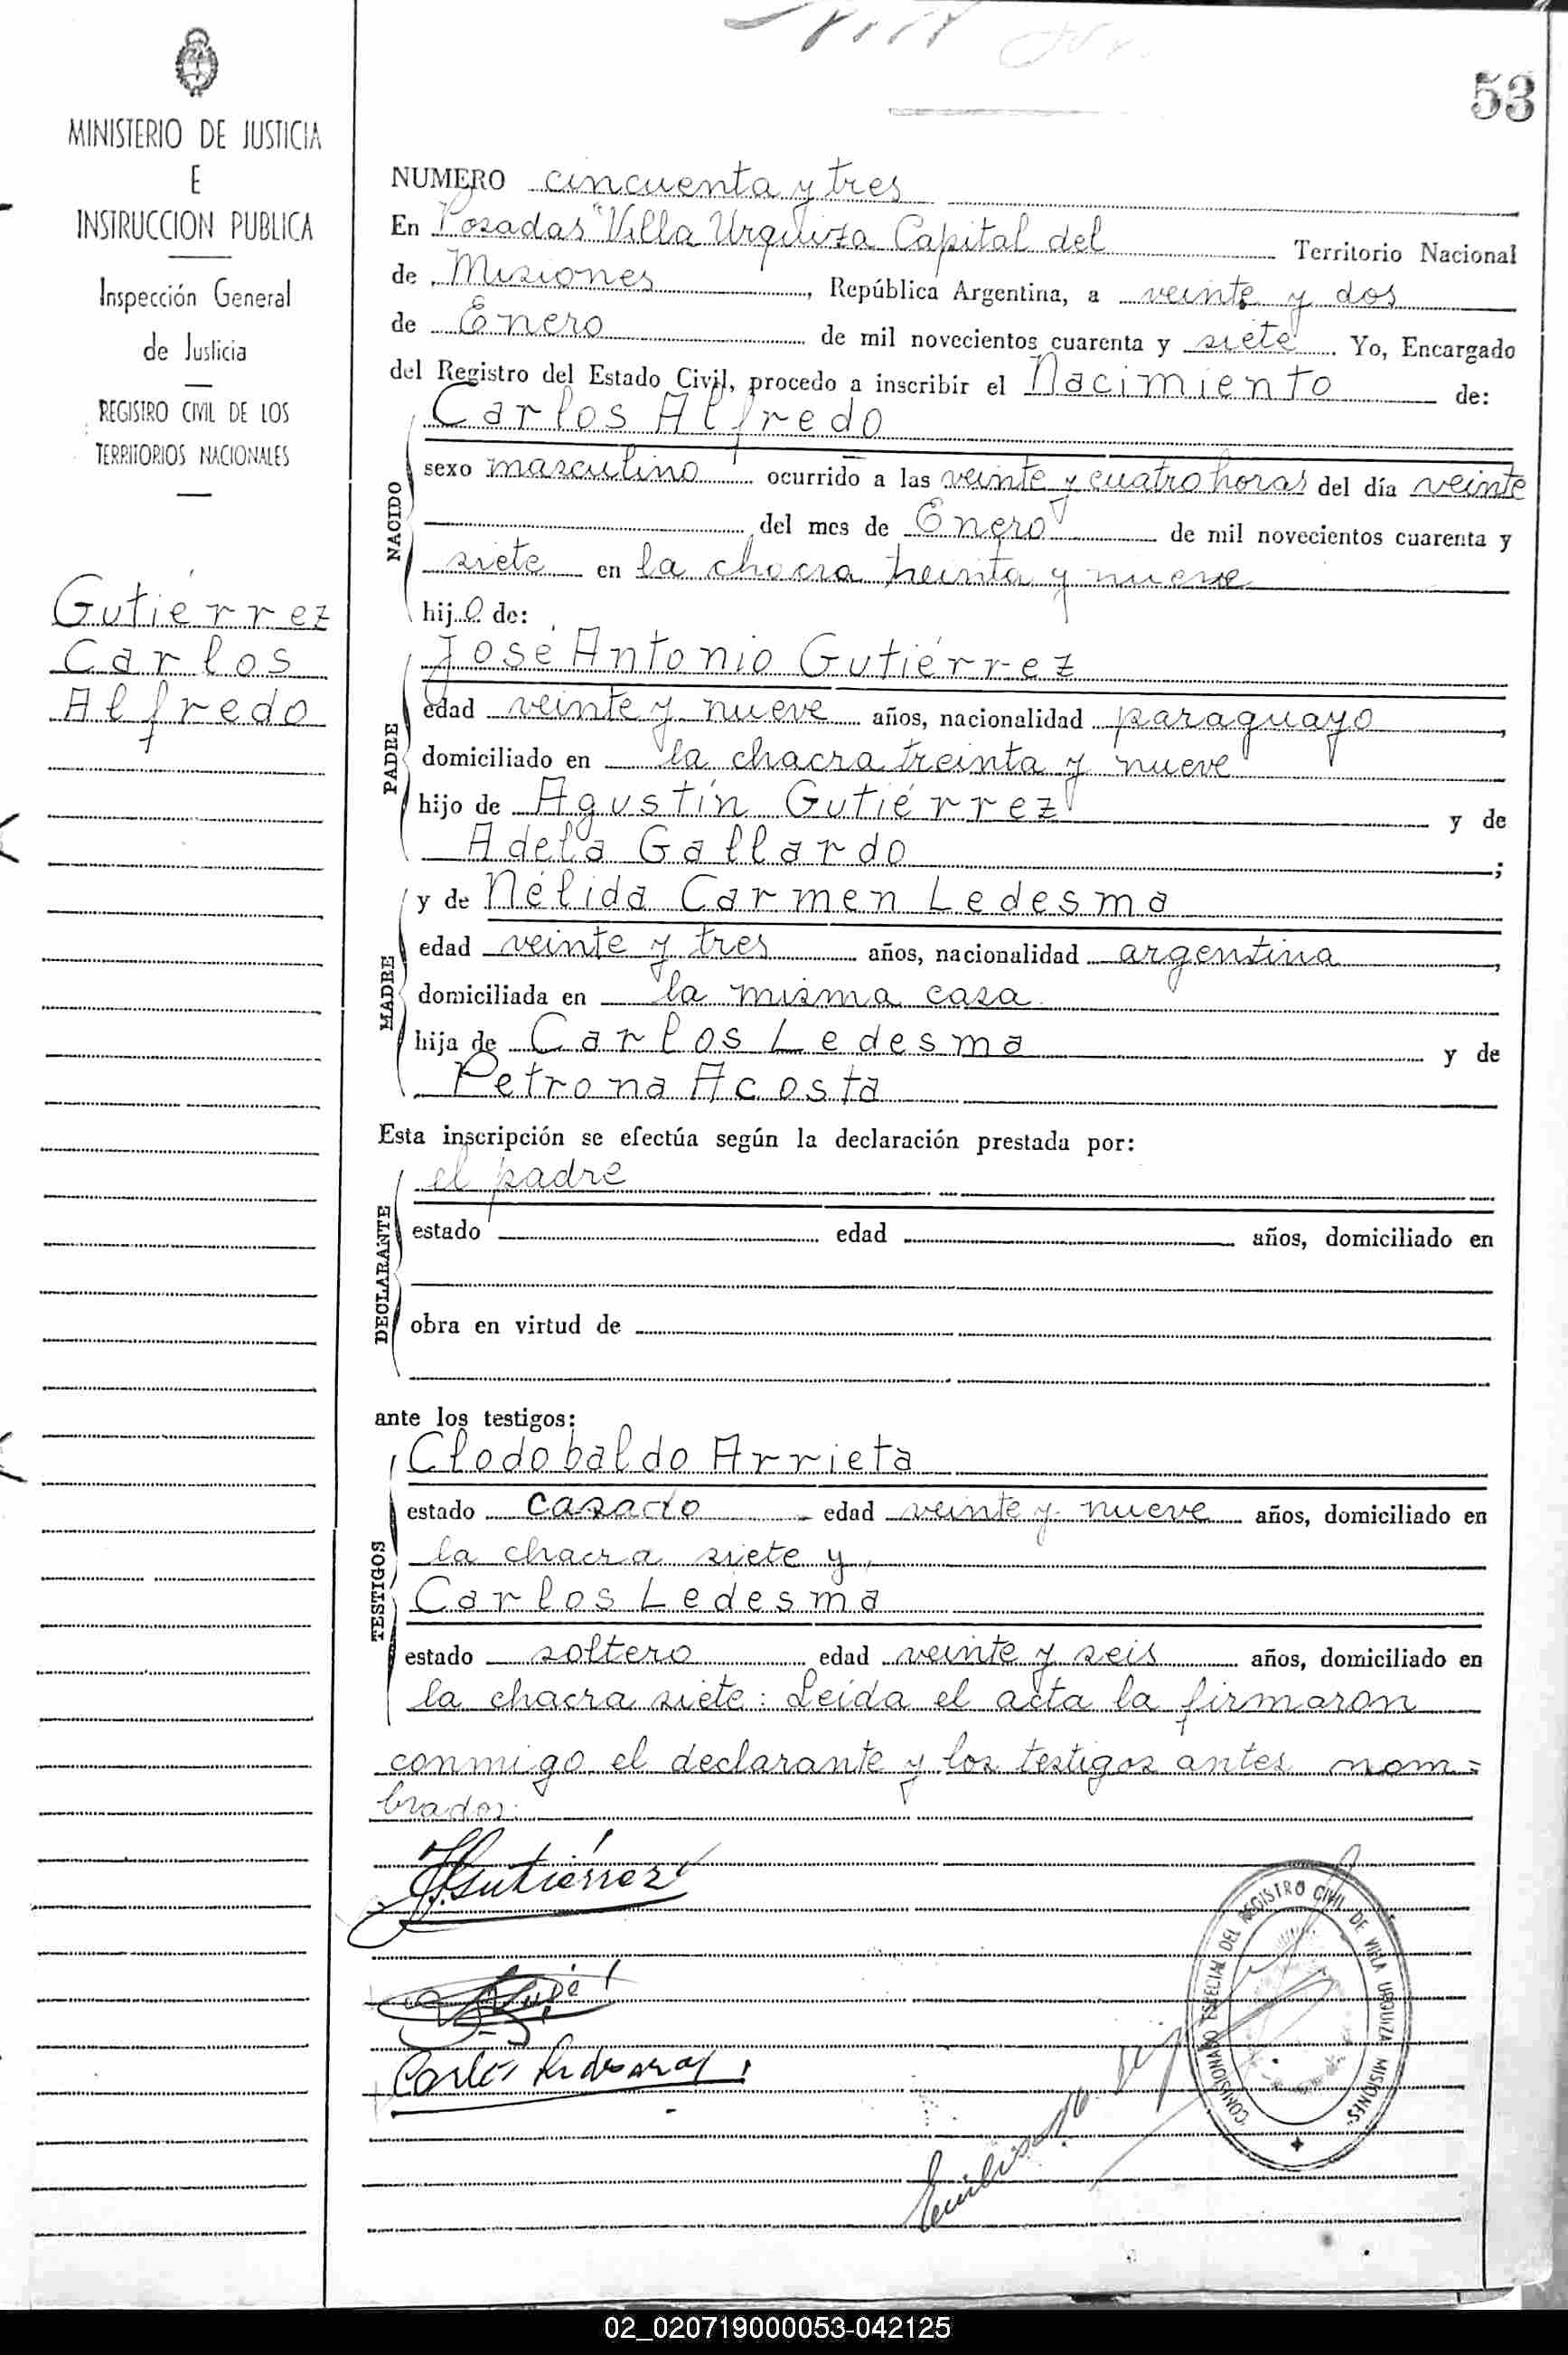 53
MINISTERIO DE JUSTICIA
E
INSTRUCCION PUBLICA
Inspección General
de Justicia
REGISTRO CIVIL DE LOS
TERRITORIOS NACIONALES
Gutiérrez
Carlos
Alfredo
NUMERO cincuenta y tres
En Posadas "Villa Urquiza Capital del Territorio Nacional
de Misiones, República Argentina, a veinte y dos
de Enero de mil novecientos cuarenta y siete. Yo, Encargado
del Registro del Estado Civil, procedo a inscribir el Nacimiento de:
NACIDO
Carlos Alfredo
sexo masculino ocurrido a las veinte y cuatro horas del día veinte
del mes de Enero de mil novecientos cuarenta y
siete en la chacra treinta y nueve
hijo de:
PADRE
José Antonio Gutiérrez
edad veinte y nueve años, nacionalidad paraguayo,
domiciliado en la chacra treinta y nueve
hijo de Agustín Gutiérrez y de
Adela Gallardo;
MADRE
y de Nélida Carmen Ledesma
edad veinte y tres años, nacionalidad argentina,
domiciliada en la misma casa
hija de Carlos Ledesma y de
Petrona Acosta
Esta inscripción se efectúa según la declaración prestada por:
DECLARANTE
el padre
estado edad años, domiciliado en
obra en virtud de
ante los testigos:
TESTIGOS
Clodobaldo Arrieta
estado casado edad veinte y nueve años, domiciliado en
la chacra siete y
Carlos Ledesma
estado soltero edad veinte y seis años, domiciliado en
la chacra siete: Leída el acta la firmaron
conmigo el declarante y los testigos antes nom=
brados.
J. Gutiérrez
Carlos Ledesma
COMISIONADO ESPECIAL DEL REGISTRO CIVIL DE VILLA URQUIZA MISIONES
02_020719000053-042125